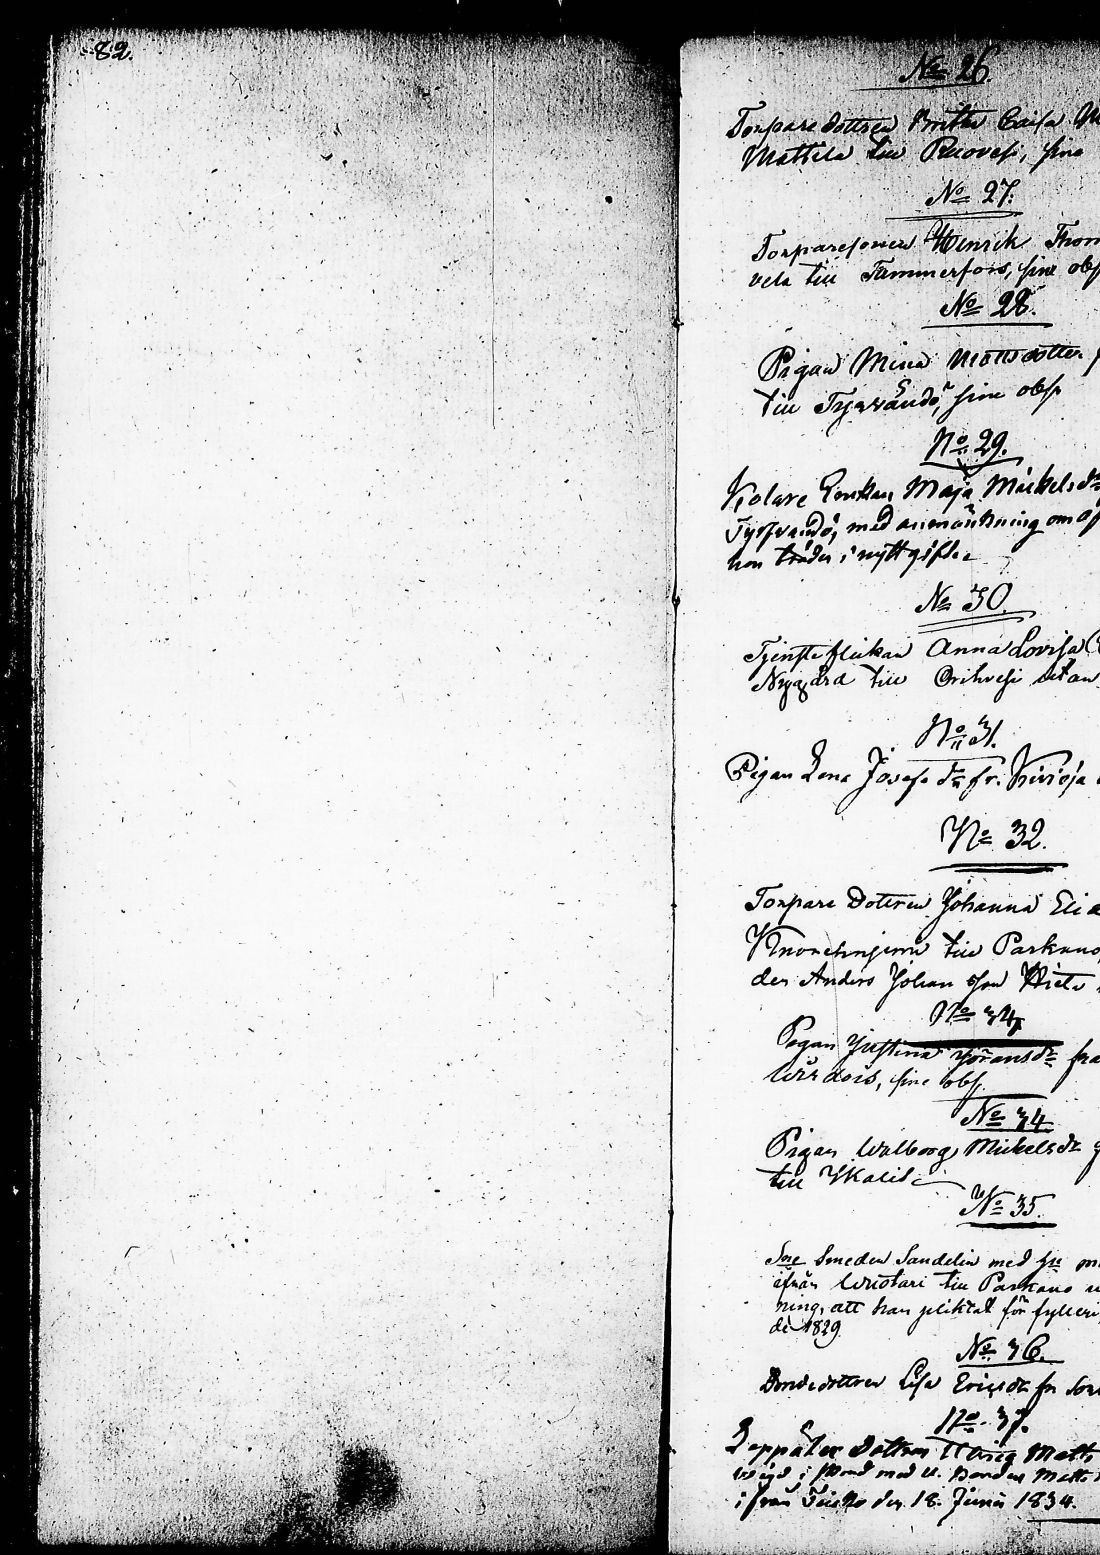 82.
No 26.
Torpare dottren Britha Caisa
Mattila till Ruovesi, sine
No 27.
Torparesonen Henrik Thom
vela till Tammerfors, sine obs
No 28.
Pigan Mina Mattsdotter
till Tyrvändö, sine obs
No 29.
Kolare Enkan Maja Mickelsdr
Tyrfvändö, med anmärkning om
hon träder i nytt gifte
No 30.
Tjenste flickan Anna Lovisa
Nygård till Orihvesi utan
No 31.
Pigan Lena Josefs dr fr. Kirioja
No 32.
Torpare Dottren Johanna
till Parkano
der Anders Johan son
No 34
Pigan Justina Jöransdr fra
Wirdois, sine obs
No 34
Pigan Walborg Mickelsdr
till Ikalis
No 35.
Smeden Sandelin med
ifrån till Parkano
ning, att han pliktat för fylleri
de 1829
No 36.
Bondedottren Lisa Ericsdr fr
No 37.
Dottren Hedvig Matts
med Bonden Matts
ifrån Teisko den 18. Junii 1834.